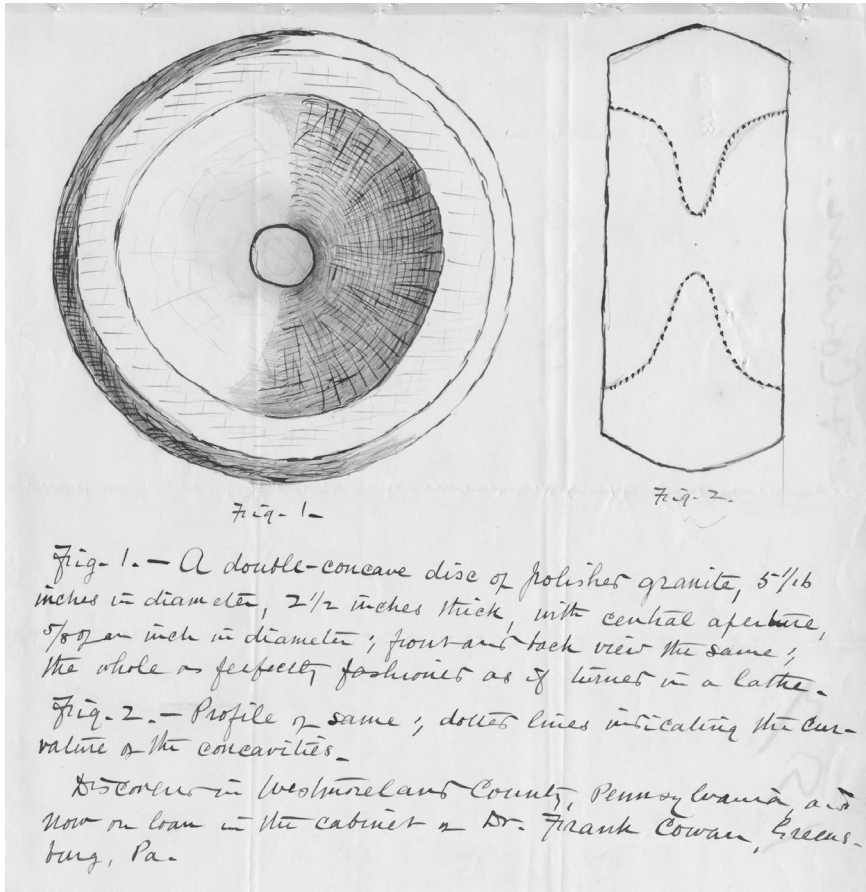 Fig. 1.
Fig. 2.
Fig. 1. — A double-concave disc of polished granite, 5 1/16
inches in diameter, 2 1/2 inches thick, with central aperture,
5/8 of an inch in diameter; front and back view the same;
the whole as perfectly fashioned as if turned in a lathe.
Fig. 2. — Profile of same; dotted lines indicating the cur-
vature of the concavities.
Discovered in Westmoreland County, Pennsylvania, and
now on loan in the cabinet of Dr. Frank Cowan, Greens-
burg, Pa.